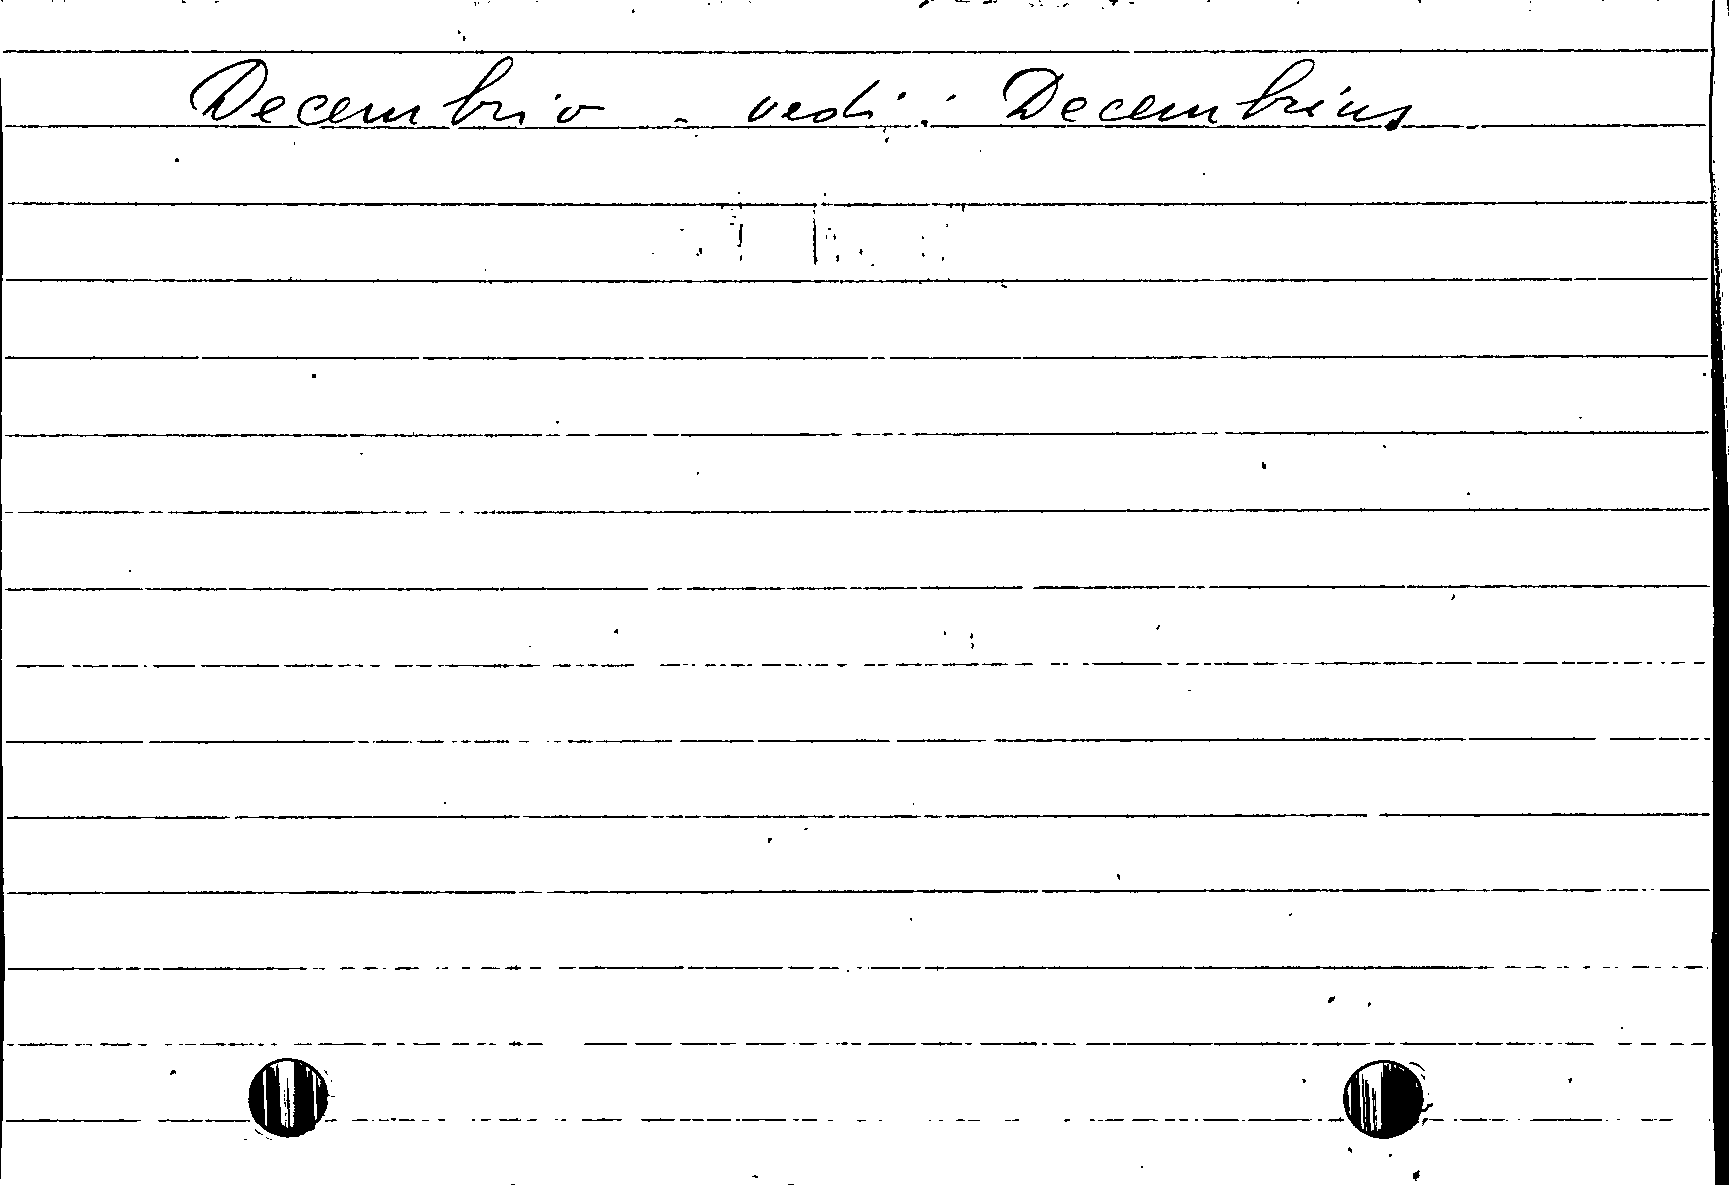 Decembrio - vedi: Decembrius